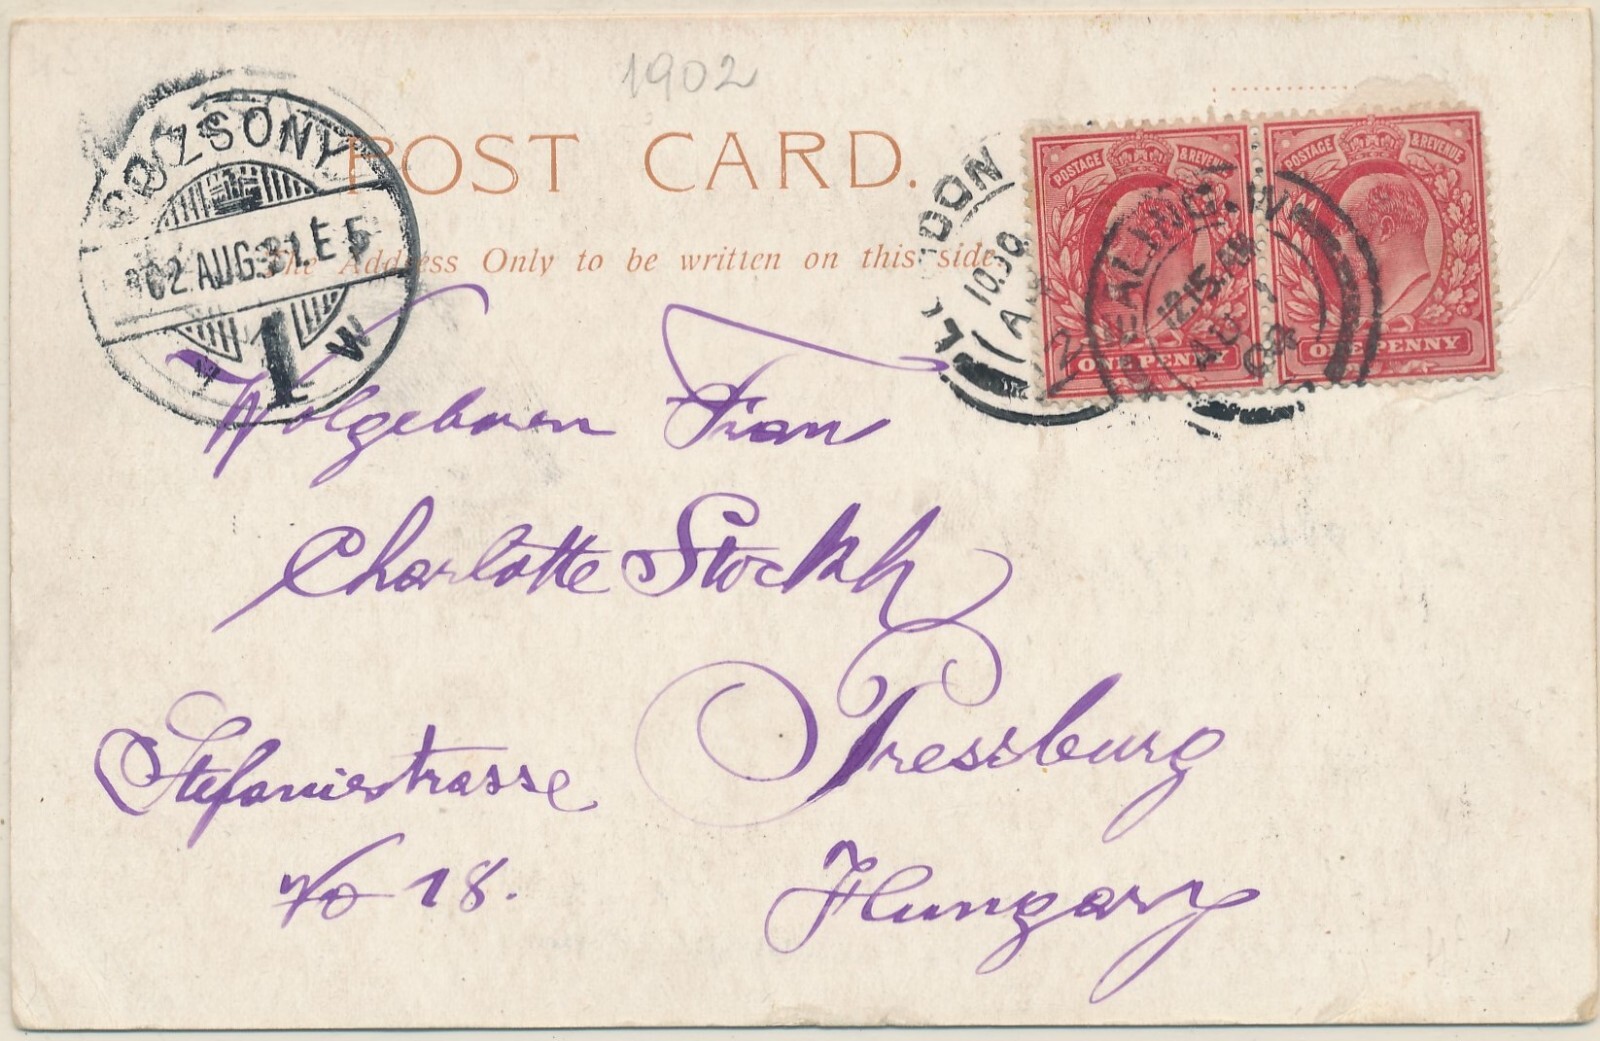 1902
POST CARD.
The Address Only to be written on this side
POZSONY
902 AUG.31.E 5
1
POSTAGE & REVENUE
ONE PENNY
POSTAGE & REVENUE
ONE PENNY
LONDON
10.30
EALING. W
12.15. AM
AU
02
Wolgeboren Frau
Charlotte Stockh
Stefaniestrasse
No 18.
Pressburg
Hungary